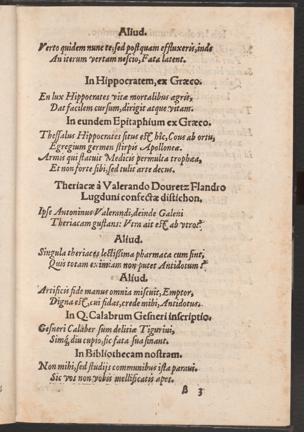 Aliud.
Verto quidem nunc te, sed postquam effluxeris, inde
An iterum vertam nescio, Fata latent.
In Hippocratem, ex Græco.
En lux Hippocrates vitæ mortalibus ægris,
Dat facilem cursum, dirigit atque vitam.
In eundem Epitaphium ex Græco.
Thessalus Hippocrates situs est hic, Cous ab ortu,
Egregium germen stirpis Apolloneæ.
Armis qui statuit Medicis permulta trophæa,
Et non forte sibi, sed tulit arte decus.
Theriacæ à Valerando Douretz Flandro
Lugduni confectæ distichon,
Ipse Antoninus Valerandi, deinde Galeni
Theriacam gustans: Utra ait est ab utro?
Aliud.
Singula theriaces lectissima pharmaca cum sint,
Quis totam eximiam non putet Antidotum?
Aliud.
Artificis fide manus omnia miscuit, Emptor,
Digna est, cui fidas, crede mihi, Antidotus.
In Q. Calabrum Gesneri inscriptio.
Gesneri Calaber sum delitiæ Tigurini,
Simq́; diu cupio, sic fata sua sinant.
In Bibliothecam nostram.
Non mihi, sed studijs communibus ista paravi.
Sic vos non vobis mellificatis apes.
B 3